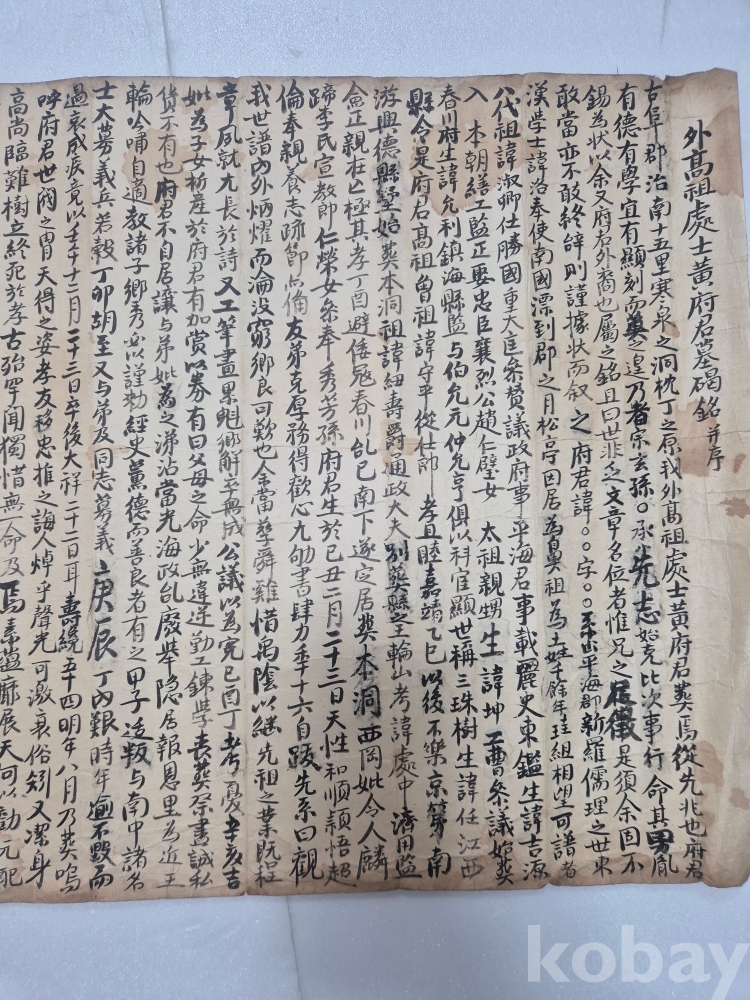 外高祖處士黃府君墓碣銘 并序
古阜郡治南十五里寒泉之洞枕丁之原我外高祖處士黃府君葬焉從先兆也府君
有德有學宜有顯刻而葬之遑乃者宗玄孫○承先志始克比次事行命其男胤
錫為狀以余又府君外裔也屬之銘且曰世非乏文章名位者惟兄之徵是須余固不
敢當亦不敢終辭則謹據狀而叙之府君諱○○字○○系出平海郡新羅儒理之世東
漢學士諱洛奉使南國漂到郡之月松亭因居為鼻祖為土姓千餘年珪組相望可譜者
八代祖諱淑卿仕勝國重大匡參贊議政府事平海君事載麗史東鑑生諱吉源
入本朝繕工監正娶忠臣襄烈公趙仁璧女太祖親甥生諱坤工曹參議始葬
春川府生諱允利鎮海縣監與伯允元仲允亨俱以科宦顯世稱三珠樹生諱任江西
縣令是府君高祖曾祖諱守平從仕郎孝且睦嘉靖乙巳以後不樂京第南
游興德縣墍始葬本洞祖諱紐壽爵通政大夫別葬縣之王輪山考諱處中濟用監
僉正親在亡極其孝丁酉避倭寇春川乱已南下遂定居葬本洞西岡妣令人麟
蹄李氏宣教郎仁榮女參奉秀芳孫府君生於己丑二月二十三日天性和順穎悟超
倫奉親養志疏節必備友弟克厚務得歡心九劬書肆力年十六自跋先系曰觀
我世譜內外炳耀而淪沒窮鄉良可歎也余當孳舜雞惜禹陰以継先祖之業既程
章夙就尤長於詩又工筆畫累魁鄉解卒無成公議以為寃己酉丁考憂辛亥吉
妣為子女析產於府君有加賞以券有曰父母之命少無違逆勤工鍊學喪葬祭盡誠私
貨不有也府君不自居讓与弟妣為之涕沾當光海政乱廢擧隱居報恩里為近王
輪吟哺自適教諸子鄉秀必以謹勑經史薰德而善良者有之甲子适叛与南中諸名
士大募義兵若穀丁卯胡至又与弟及同志募義庚辰丁內艱時年逾不毀而
過哀成疾竟以壬午十二月二十三日卒後大祥二十二日耳壽纔五十四明年八月乃葬嗚
呼府君世閥之胄天得之姿孝友移忠推之誨人焯乎聲光可激衰俗矧又潔身
高尚臨難樹立終死於孝古殆罕聞獨惜無一命及焉素蘊靡展天何以勸元配